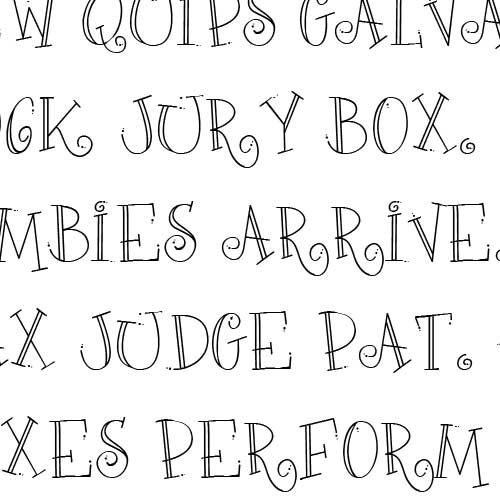 EW QUIPS GALVA
OCK JURY BOX.
MBIES ARRIVE.
AX JUDGE PAT.
XES PERFORM